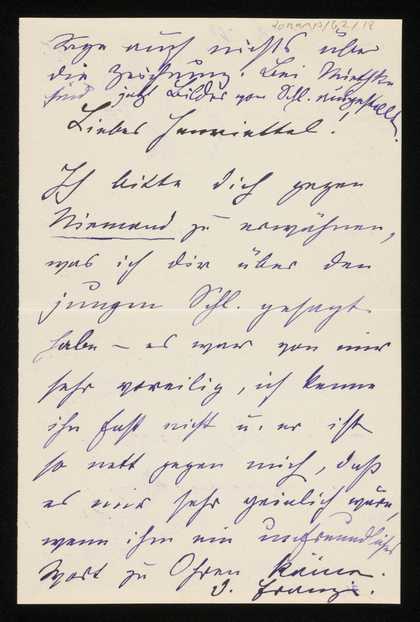 Sage auch nichts über
die Zeichnung. Bei Miethke
sind jetzt Bilder von Schl. ausgestellt.
Liebes Henriettel!
Ich bitte dich gegen
Niemand zu erwähnen,
was ich dir über den
jungen Schl. gesagt
habe – es war von mir
sehr voreilig, ich kenne
ihn fast nicht u. er ist
so nett gegen mich, daß
es mir sehr peinlich wäre,
wenn ihm ein unfreundliches
Wort zu Ohren käme.
D. Franzi.